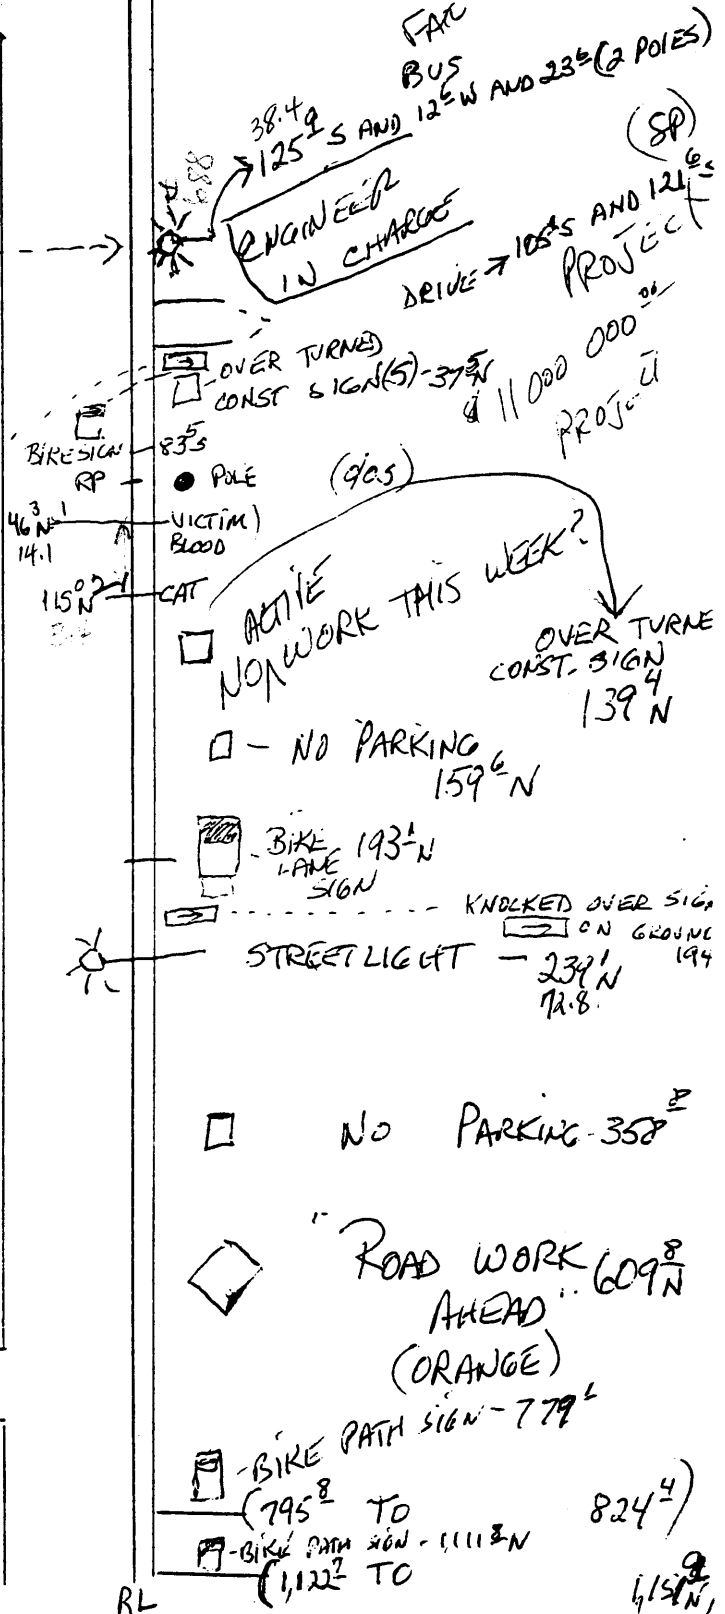 FAX
BUS
38.4
125⁹ S AND 12⁶ W AND 23⁶ (2 POLES)
(SP)
889
ENGINEER
IN CHARGE
DRIVE → 105⁸ S AND 121⁶ S
PROJECT
OVER TURNED
CONST SIGN(S) - 37⁵ N
$ 11 000 000⁰⁰
PROJ
BIKE SIGN - 83⁵ S
RP - POLE
(d/o.s)
46³ N
VICTIM)
BLOOD
14.1
115⁰ N
CAT
ACTIVE
NO WORK THIS WEEK?
OVER TURNE
CONST. SIGN
139⁴ N
- NO PARKING
159⁶ N
- BIKE 193¹ N
LANE
SIGN
KNOCKED OVER SIGN
ON GROUND
194
STREET LIGHT - 239¹ N
72.8
NO PARKING - 358⁸
"ROAD WORK 609⁸ N
AHEAD"
(ORANGE)
- BIKE PATH SIGN - 779¹
(795⁸ TO 824⁴)
- BIKE PATH SIGN - 1,111⁸ N
(1,122⁷ TO 1,151⁹ N)
RL